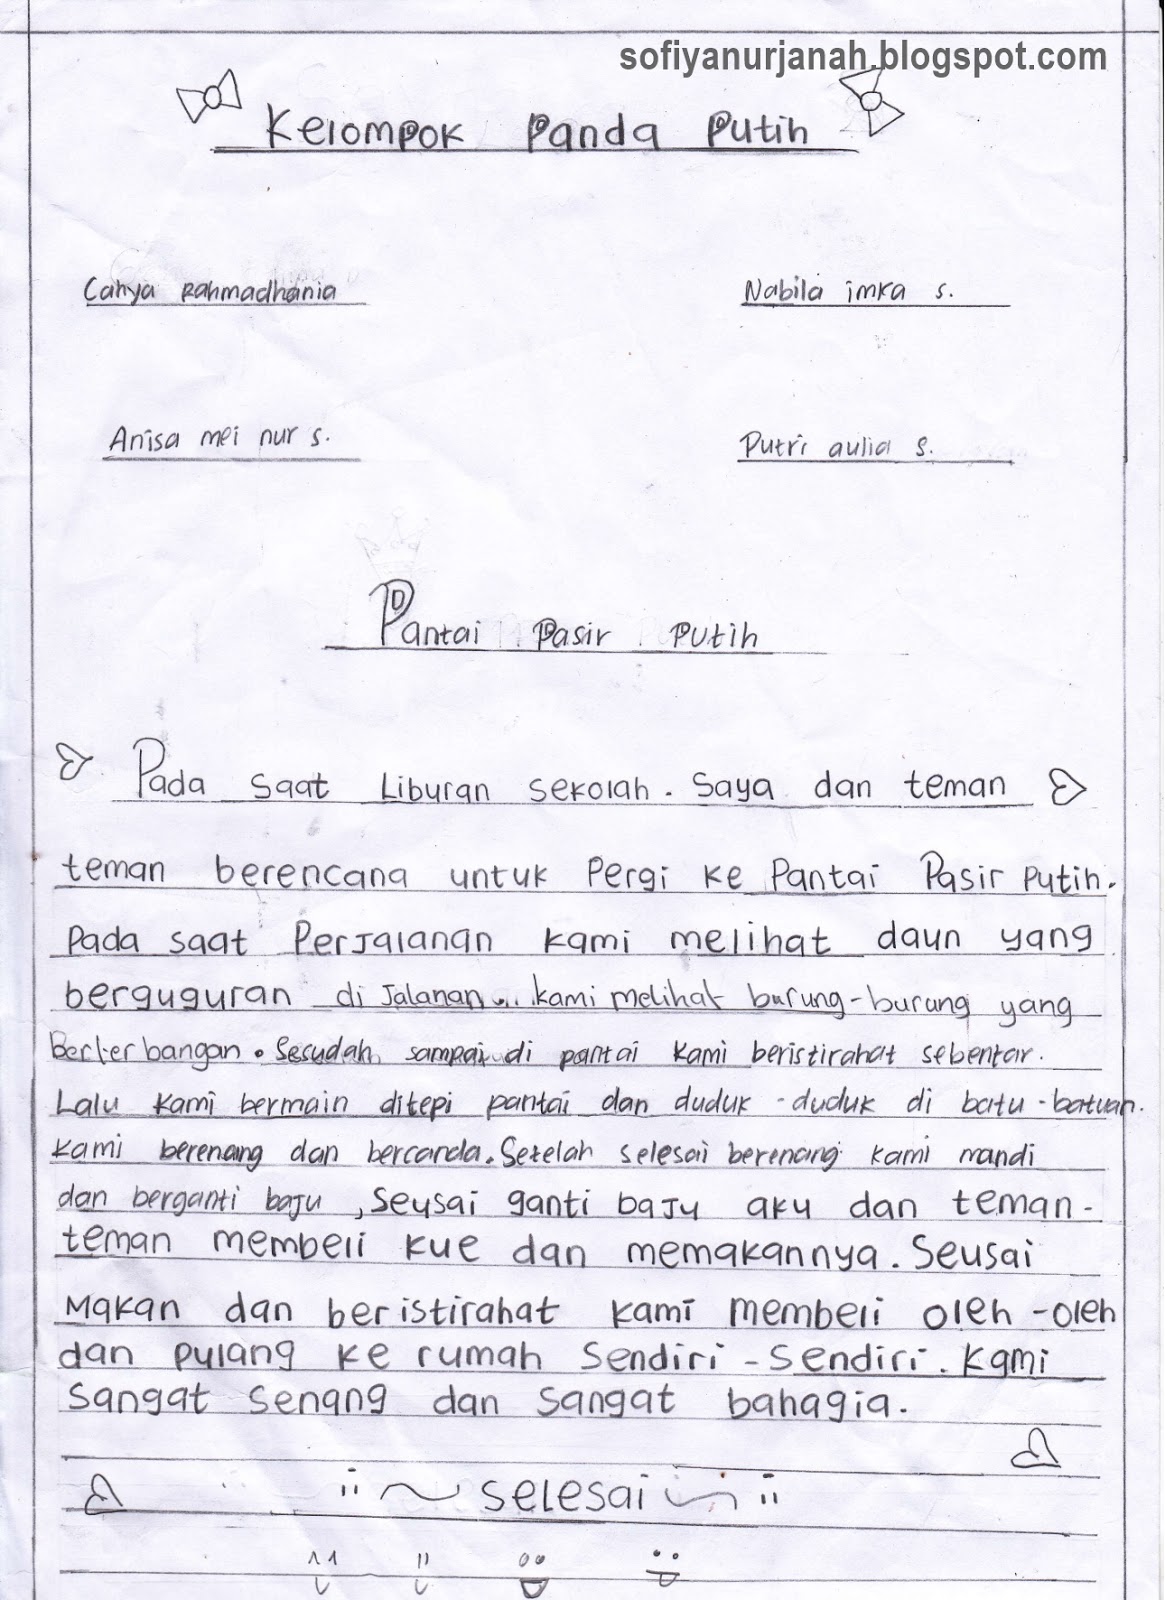 sofiyanurjanah.blogspot.com
Kelompok Panda Putih
Cahya Rahmadhania Nabila imka s.
Anisa mei nur s. Putri aulia s.
Pantai Pasir Putih
Pada saat Liburan sekolah. Saya dan teman
teman berencana untuk Pergi ke Pantai Pasir Putih.
Pada saat Perjalanan kami melihat daun yang
berguguran di Jalanan... kami melihat burung-burung yang
Berterbangan. Sesudah sampai di pantai kami beristirahat sebentar.
Lalu kami bermain ditepi pantai dan duduk -duduk di batu -batuan.
kami berenang dan bercanda. Setelah selesai berenang kami mandi
dan berganti baju, Seusai ganti baju aku dan teman-
teman membeli kue dan memakannya. Seusai
Makan dan beristirahat kami membeli oleh -oleh
dan pulang ke rumah Sendiri -Sendiri. Kami
Sangat senang dan Sangat bahagia.
selesai